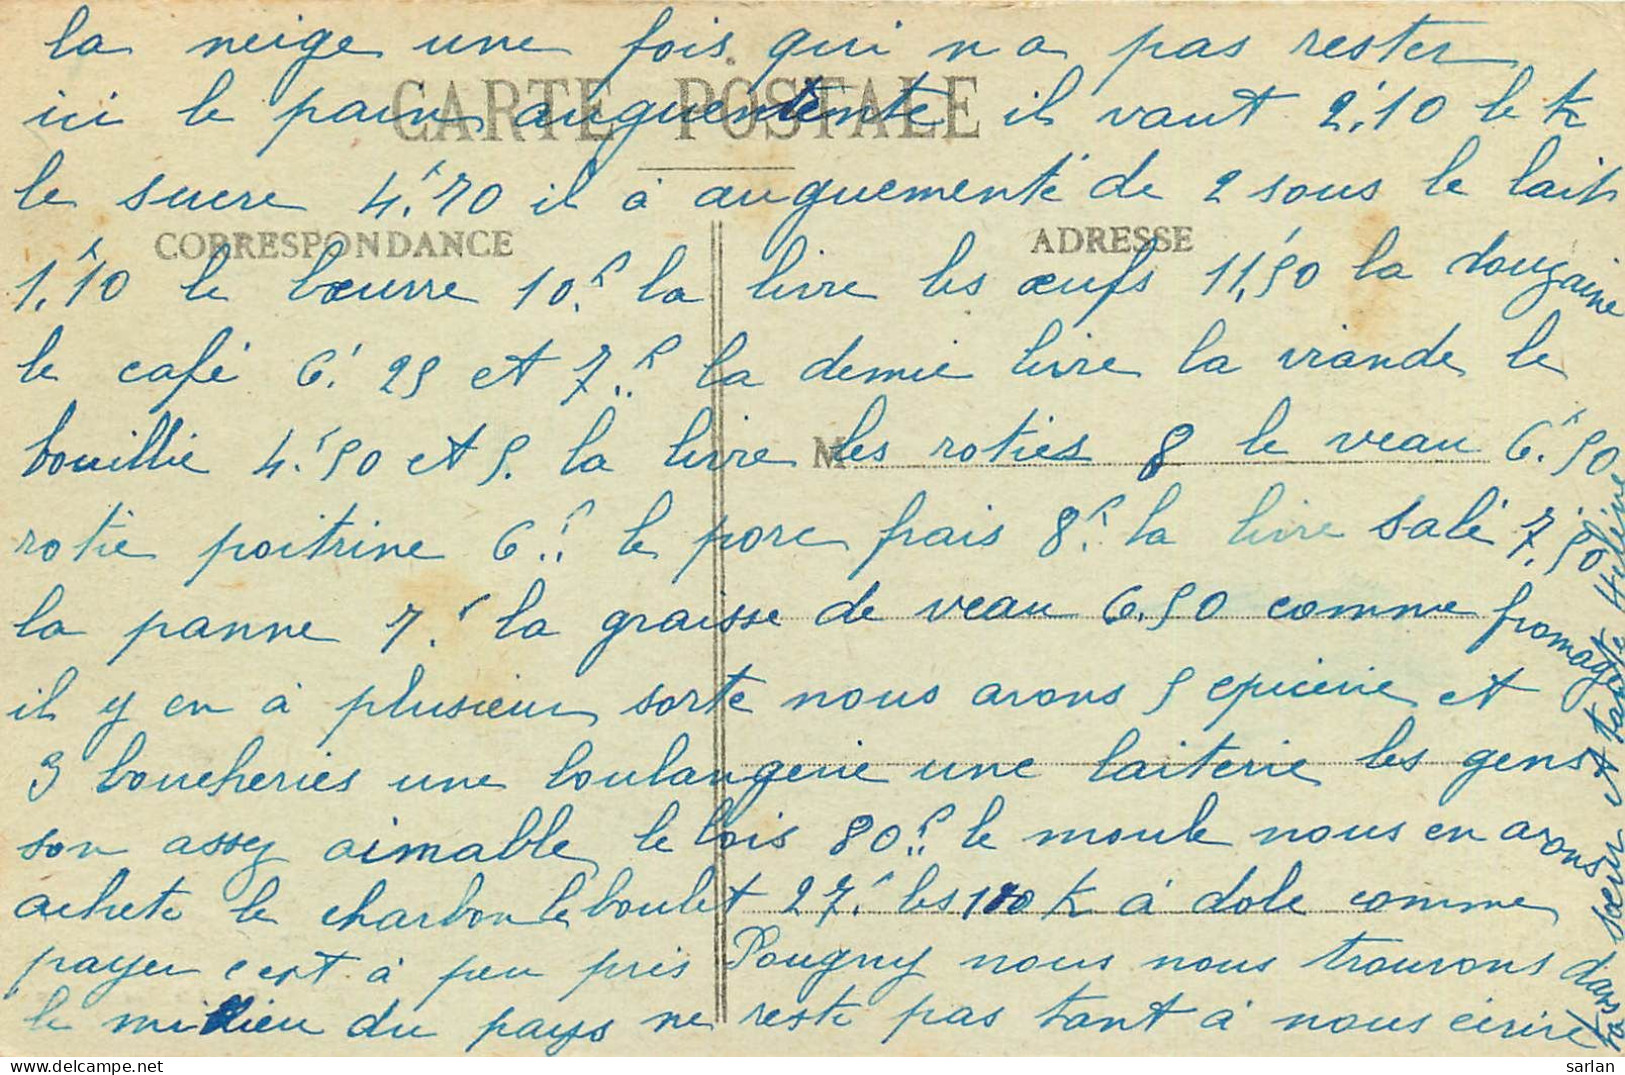 la neige une fois qui n a pas rester
CARTE POSTALE
ici le pain auguemente il vaut 2f,10 le k
le sucre 4f,70 il à auguementé de 2 sous le lait
CORRESPONDANCE
ADRESSE
1f,10 le beurre 10f. la livre les œufs 11f,50 la douzaine
le café 6f.25 et 7f. la demie livre la viande le
bouillie 4f.50 et 5. la livre les roties 8 le veau 6f.50
M
rotie poitrine 6f. le porc frais 8f. la livre salé 7f.50
la panne 7f. la graisse de veau 6.50 comme fromage
il y en à plusieur sorte nous avons 5 epicerie et
3 boucheries une boulangerie une laiterie les gens
son assez aimable le bois 80f. le moule nous en avons
achete le charbon le boulet 27f. les 100 k à dole comme
payer c ert à peu pris Pougny nous nous trouvons dans
le milieu du pays ne reste pas tant à nous écrire
ta sœur et tante Hélène
sarlan